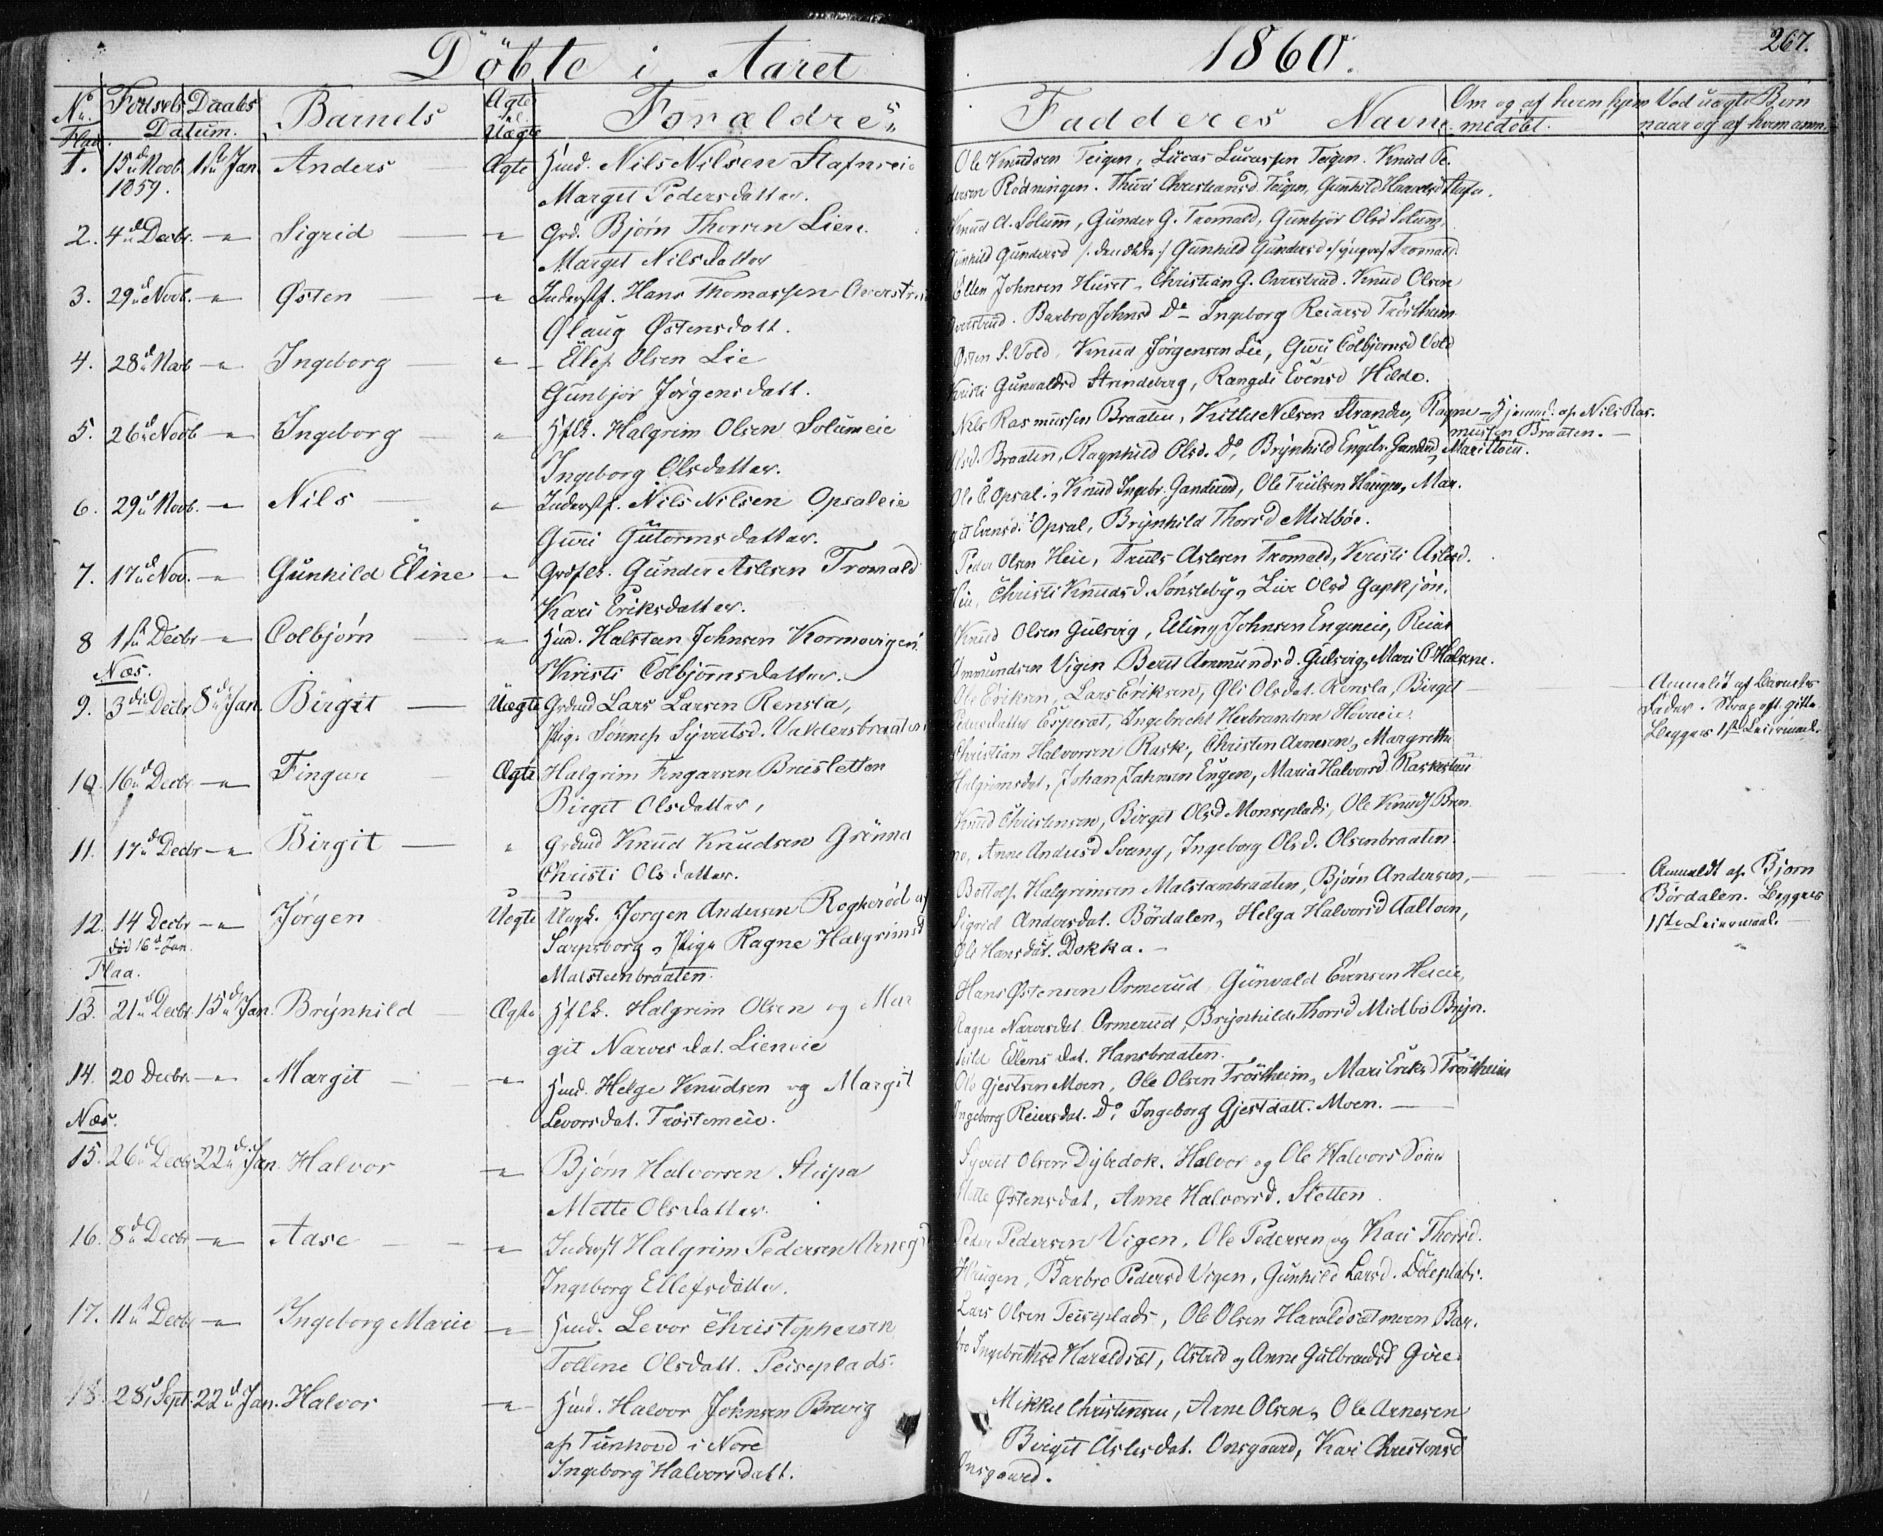 Döbte i Aaret 1860. 267.
No. Fødsels Daabs Datum. Barnets Ægte el. Uægte Forældre Fadderes Navne Om og af hvem hjemmedöbt. Ved uægte Børn naar og af hvem anm.
Flaa
1. 15de Novb. 1859. 1ste Jan. Anders Ægte Huusm. Nils Nilsen Stafnseie
Margit Pedersdatter.
Ole Knudsen Teigen, Lucas Lucassen Teigen. Knud Pe-
dersen Rödningen. Thuri Christiansd Teigen, Gunhild Haavarsd
2. 4de Decbr. Sigrid Grd. Bjørn Thorsen Lien
Margit Nilsdatter
Knud A. Solum, Gunder G. Tromald, Gunbjør Olsd Solum,
Gunhild Gundersd /: den ældre :/ Gunhild Gundersd /: yngre :/ Tromald.
3. 29de Novb. Østen Inderstf. Hans Thomassen Averstrud
Olaug Østensdatt.
Ellen Johnsen Huset, Christian G. Averstrud. Knud Olsen
Averstrud. Barbro Johnsd Do Ingeborg Reiarsd Trøstheim
4. 28de Novb Ingeborg Ellef Olsen Lie
Gunbjør Jørgensdatt.
Østen S. Vold, Knud Jørgensen Lie, Guri Colbjørnsd Vold
Kristi Gunvaldsd Strindeberg, Rangdi Evensd Hilde.
5. 26de Novb Ingeborg Hflk. Halgrim Olsen Solumeie
Ingeborg Olsdatter.
Nils Rasmussen Braaten, Kittel Nilsen Stranden, Ragne
Olsd. Braaten, Ragnhild Olsd. Do, Brynhild Engebr. Gandrud,
Hjemmd. af Nils Ras-
mussen Braaten.
6. 29de Novb. Nils Inderstf. Nils Nilsen Opsaleie
Guri Gutormsdatter.
Ole E Opsal, Knud Ingebr. Gandrud, Ole Trulsen Haugen, Mar-
git Evensd. Opsal, Brynhild Thorsd Midbøe.
7. 17de Nov. Gunhild Eline Grdflk. Gunder Aslesen Tromald
Kari Eriksdatter.
Peder Olsen Heie, Truls Aslesen Tromald, Kristi Aslesd.
Heie, Christi Knudsd. Sønsteby, Live Olsd Gapkjøn.
8 1ste Decbr Colbjørn Huusm. Halstein Johnsen
Kristi Colbjørnsdatter.
Knud Olsen Gulsvig, Elling Johnsen Engeneie, Reiar
Ammundsen Vigen Berit Ammundsd. Gulsvig, Mari
Næs.
9. 3die Decbr 8de Jan. Birgit Uægte Grdmd Lars Larsen Rensla,
Pige Sønnef Syvertsd.
Ole Eriksen, Lars Eriksen, Øli Olsdat. Rensla, Birgit
Pedersdatter Espeset, Ingebrecht Herbrandsen
Anmeldt af Barnets
Fader.
Begges 1ste Leiermaal.
10. 16de Decbr Fingar Ægte Halgrim Fingarsen Brusletten
Birgit Olsdatter,
Christian Halvorsen Rask, Christen Arnesen, Margrethe
Halgrimsdat, Johan Johnsen Engen, Maria Halvorsd Raskestøen
11. 17de Decbr Birgit Grdmd Knud Knudsen Grönna
Christi Olsdatter.
Knud Christensen, Birgit Olsd Monseplads, Ole Knuds
Anne Andersd Svang, Ingeborg Olsd. Olsenbraaten.
12. 14 Decbr Jørgen Uægte Ungk. Jørgen Andersen
Død 16de Jan.
Sarpsborg, Pige Ragne Halgrimsd
Malsteenbraaten.
Bottolf Halgrimsen Malstænbraaten, Bjørn Andersen,
Sigrid Andersdat. Bördalen, Helga Halvorsd
Øli Hansdat. Dokka.
Anmeldt af Bjørn
Bördalen. Begges
1ste Leiermaal.
Flaa.
13. 21de Decbr. 15de Jan Brynhild Ægte Hflk. Halgrim Olsen og Mar
git Narvesdat. Lieneie
Hans Østensen Ormerud, Gunvald Evensen Heieie,
Ragne Narvesdat. Ormerud, Brynhild Thorsd Midbø Bryn-
hild Ellensdat. Hansbraaten.
14. 20 Decbr. Margit Huusm. Helge Knudsen og Margit
Levorsdat. Trøstemeie.
Ole Gjestsen Moen, Ole Olsen Tröstheim, Mari Eriksd Tröstheim
Ingeborg Reiersdat. Do, Ingeborg Gjestdatt. Moen.
Næs.
15. 26de Decbr 22de Jan. Halvor Bjørn Halvorsen Stupa
Mette Olsdatter.
Syvert Olsen Dybedok. Halvor og Ole Halvors Sønner
Mette Østensdat, Anne Halvorsd. Sletten
16. 8de Decbr Aase Inderst Halgrim Pedersen
Ingeborg Ellefsdatter.
Peder Pedersen Vigen, Ole Pedersen og Kari Thorsd.
Haugen, Barbro Pedersd Vigen, Gunhild Larsd. Döleplads.
17. 11te Decbr Ingeborg Marie Huusm. Levor Christophersen
Tolline Olsdatt. Peiseplads.
Lars Olsen Peiseplads, Ole Olsen Haraldsetmoen Bar-
bro Ingebrethsd Haraldset, Astrid og Anne Gulbrandsd
18. 28de Sept. 22de Jan. Halvor Huusm. Halvor Johnsen
af Tunhovd i Nore
Ingeborg Halvorsdatt.
Mikkel Christensen, Arne Olsen, Ole Arnesen
Birgit Aslesdat. Onsgaard, Kari Christensd
Onsgaard.